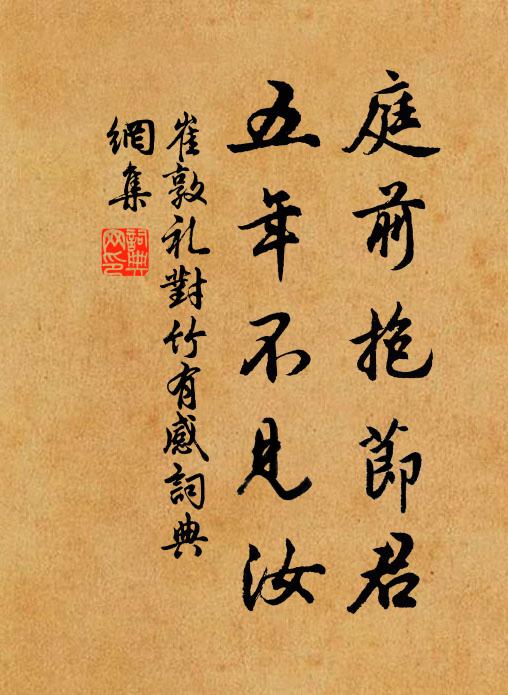 庭前抱節君
五年不見汝
崔敦礼對竹有感詞典
網集
詞典網印